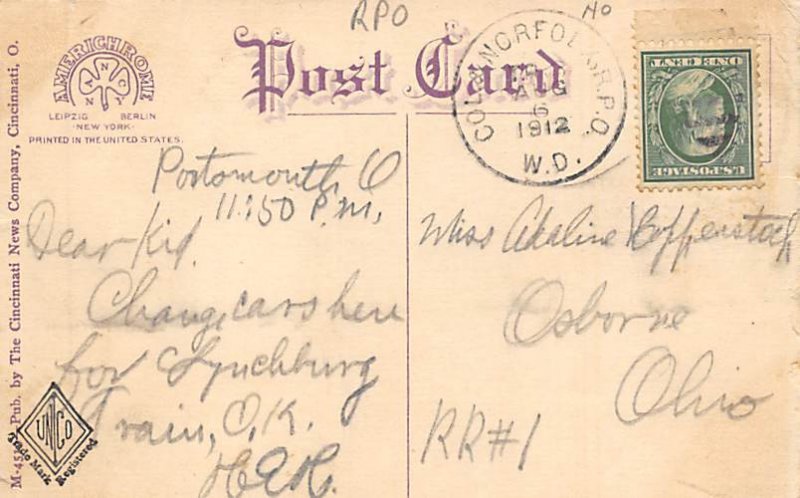 RPO
No
AMERICHROME
LEIPZIG BERLIN
NEW YORK
PRINTED IN THE UNITED STATES.
Post Card
COL. & NORFOLK R.P.O.
AUG
6
1912
W.D.
ONE CENT
U.S. POSTAGE
Portsmouth, O
11:50 P.M.,
Dear Kid.
Change cars here
for Lynchburg
Train, O.K.
H.E.H.
Miss Adaline
Osborne
Ohio
RR#1
Pub. by The Cincinnati News Company, Cincinnati, O.
UNCO
Trade Mark Registered